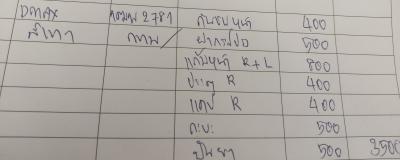 DMAX 2781 กันชนหน้า 400
สีเทา กทม ฝากระโปรง 500
แก้มหน้า R+L 800
ประตู R 400
แคป R 400
กะบะ 500
500 3500